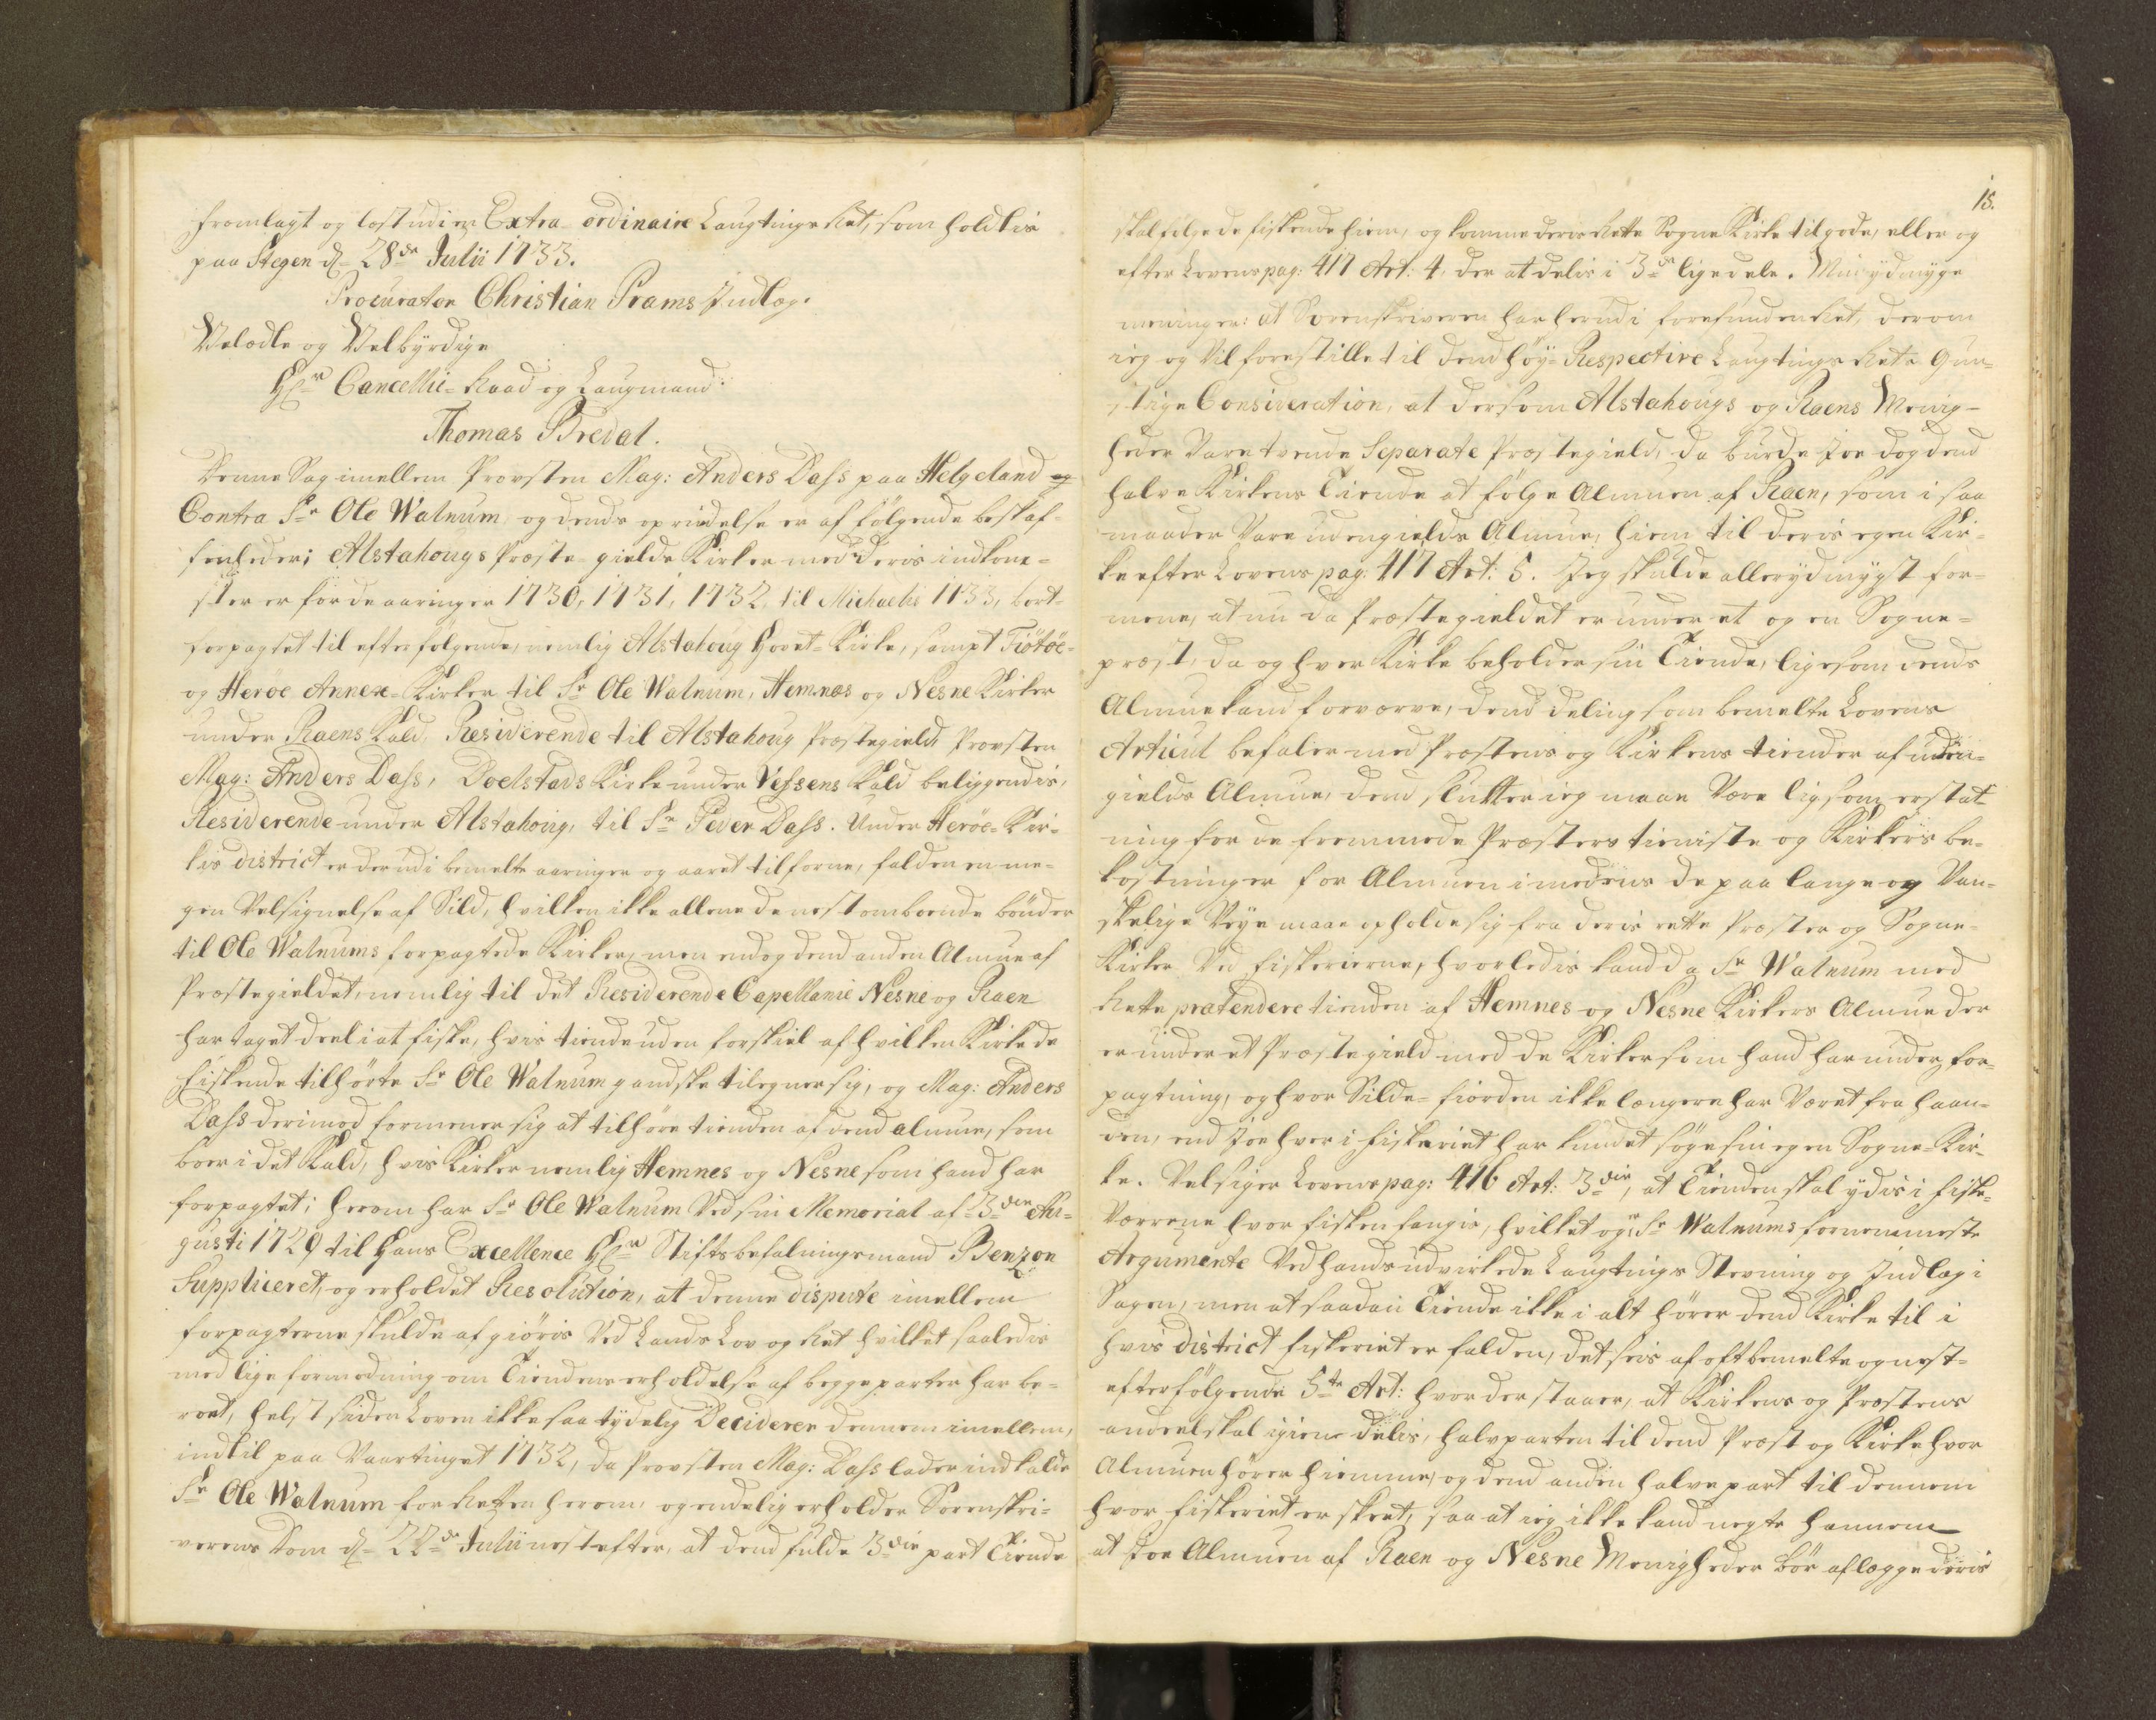 fremlagt og læst udi en Extra ordinaire Laugtings Ret, som holdtis
paa Stegen d. 28de Julii 1733.
Procurator Christian Prams Indlæg.
Velædle og Velbyrdige
Hr. Cancellie-Raad og Laugmand
Thomas Bredal.
Denne Sag imellem Provsten Mag: Anders Dass paa Helgeland
Contra Sr. Ole Walnum og dends oprindelse er af følgende beskaf-
fenheder; Alstahougs Præste-gields Kirker med deris indkom-
ster er for de aaringer 1730, 1731, 1732 til Michaelis 1733, bort-
forpagtet til efterfølgende, nemlig Alstahoug Hovet-Kirke, sampt Tiøtøe-
og Herøe Annex-Kirker til Sr. Ole Walnum, Hemnæs og Nesne Kirker
under Raens Kald, Residerende til Alstahoug Præstegield, Provsten
Mag: Anders Dass, Doelstads Kirke under Vefsens Kald beliggendis,
Residerende under Alstahoug, til Sr. Peder Dass. Under Herøe-Kir-
kis district er der udi bemelte aaringer og aaret tilforne, falden en me-
gen Velsignelse af Sild, hvilken ikke allene de nest omboende bønder
til Ole Walnums forpagtede Kirker, men endog dend anden Almue af
Præstegieldet, nemlig til det Residerende Capellanie Nesne og Raen
har taget deel i at fiske, hvis tiende uden forskiel af hvilken Kirke de
fiskende tilhørte Sr. Ole Walnum gandske tilegner sig, og Mag: Anders
Dass derimod formener sig at tilhøre tienden af dend almue, som
boer i det Kald, hvis Kirker nemlig Hemnes og Nesne som hand har
forpagtet; herom har Sr. Ole Walnum Ved sin Memorial af 3die Au-
gusti 1729 til Hans Excellence Hr. Stiftsbefalningsmand Benzon
Suppliceret, og erholdet Resolution, at denne dispute imellem
forpagterne skulde afgiøris Ved Lands Lov og Ret hvilket saaledis
med lige formodning om Tiendens erholdelse af begge parter har be-
roet, helst siden Loven ikke saa tydelig Deciderer dennem imellem,
indtil paa Vaartinget 1732, da Provsten Mag: Dass lader indkalde
Sr. Ole Walnum for Retten herom, og endelig erholder Sorenskri-
verens Dom d. 22de Julii nest efter, at dend fulde 3die part Tiende
15.
skal følge de fiskende hiem, og komme deris Rette Sogne Kirke tilgode, eller og
efter Lovens pag: 417 Art: 4. der at delis i 3de ligedele. Min ydmyge
meninger: at Sorenskriveren har herudi forefunden Ret, derom
ieg og Vil forestille til dend høy-Respective Laugtings Rets Gun-
stige Consideration, at dersom Alstahougs og Raens Menig-
heder Vare tvende Separate Præstegield, da burde Joe dog dend
halve Kirkens Tiende at følge Almuen af Raen, som i saa
maader Vare udengields Almue, hiem til deris egen Kir-
ke efter Lovens pag: 417 Art: 5. Jeg skulde allerydmygst for-
mene, at nu da Præstegieldet er under et og en Sogne-
præst, da og hver Kirke beholder sin Tiende, ligesom dends
Almue kand forværve, dend deling som bemelte Lovens
Articul befaler med Præstens og Kirkens tiender af uden-
gields Almue, dend slutter ieg maae Være lig som erstat-
ning for de fremmede Præsters tieniste og Kirkers be-
kostninger for Almuen imedens de paa lange og Van-
skelige Veye maae opholde sig fra deris rette Præster og Sogne-
Kirker Ved fiskerierne, hvorledis kand da Sr. Walnum med
Rette prætendere tienden af Hemnes og Nesne Kirkers Almue der
er under et Præstegield med de Kirker som hand har under for-
pagtning, og hvor Silde-fiorden ikke længere har Været fra haan-
den, end Joe hver i fiskeriet har kundet søge sin egen Sogne-Kir-
ke. Vel siger Lovens pag: 416 Art: 3die, at Tienden skal ydis i fiske-
Værerne hvor fisken fangis, hvilket og er Sr. Walnums fornemmeste
Argumente Ved hands udvirkede Laugtings Stevning og Indlæg i
Sagen, men at saadan Tiende ikke i alt hører dend Kirke til i
hvis district fiskeriet er falden, det seis af oftbemelte og nest-
efterfølgende 5te Art: hvor der staaer, at Kirkens og Præstens
andeel skal igien delis, halvparten til dend Præst og Kirke hvor
Almuen hører hiemme, og dend anden halve part til dennem
hvor fiskeriet er skeet, saa at ieg ikke kand negte hannem
at Joe Almuen af Raen og Nesne Menigheder bør aflægge deris